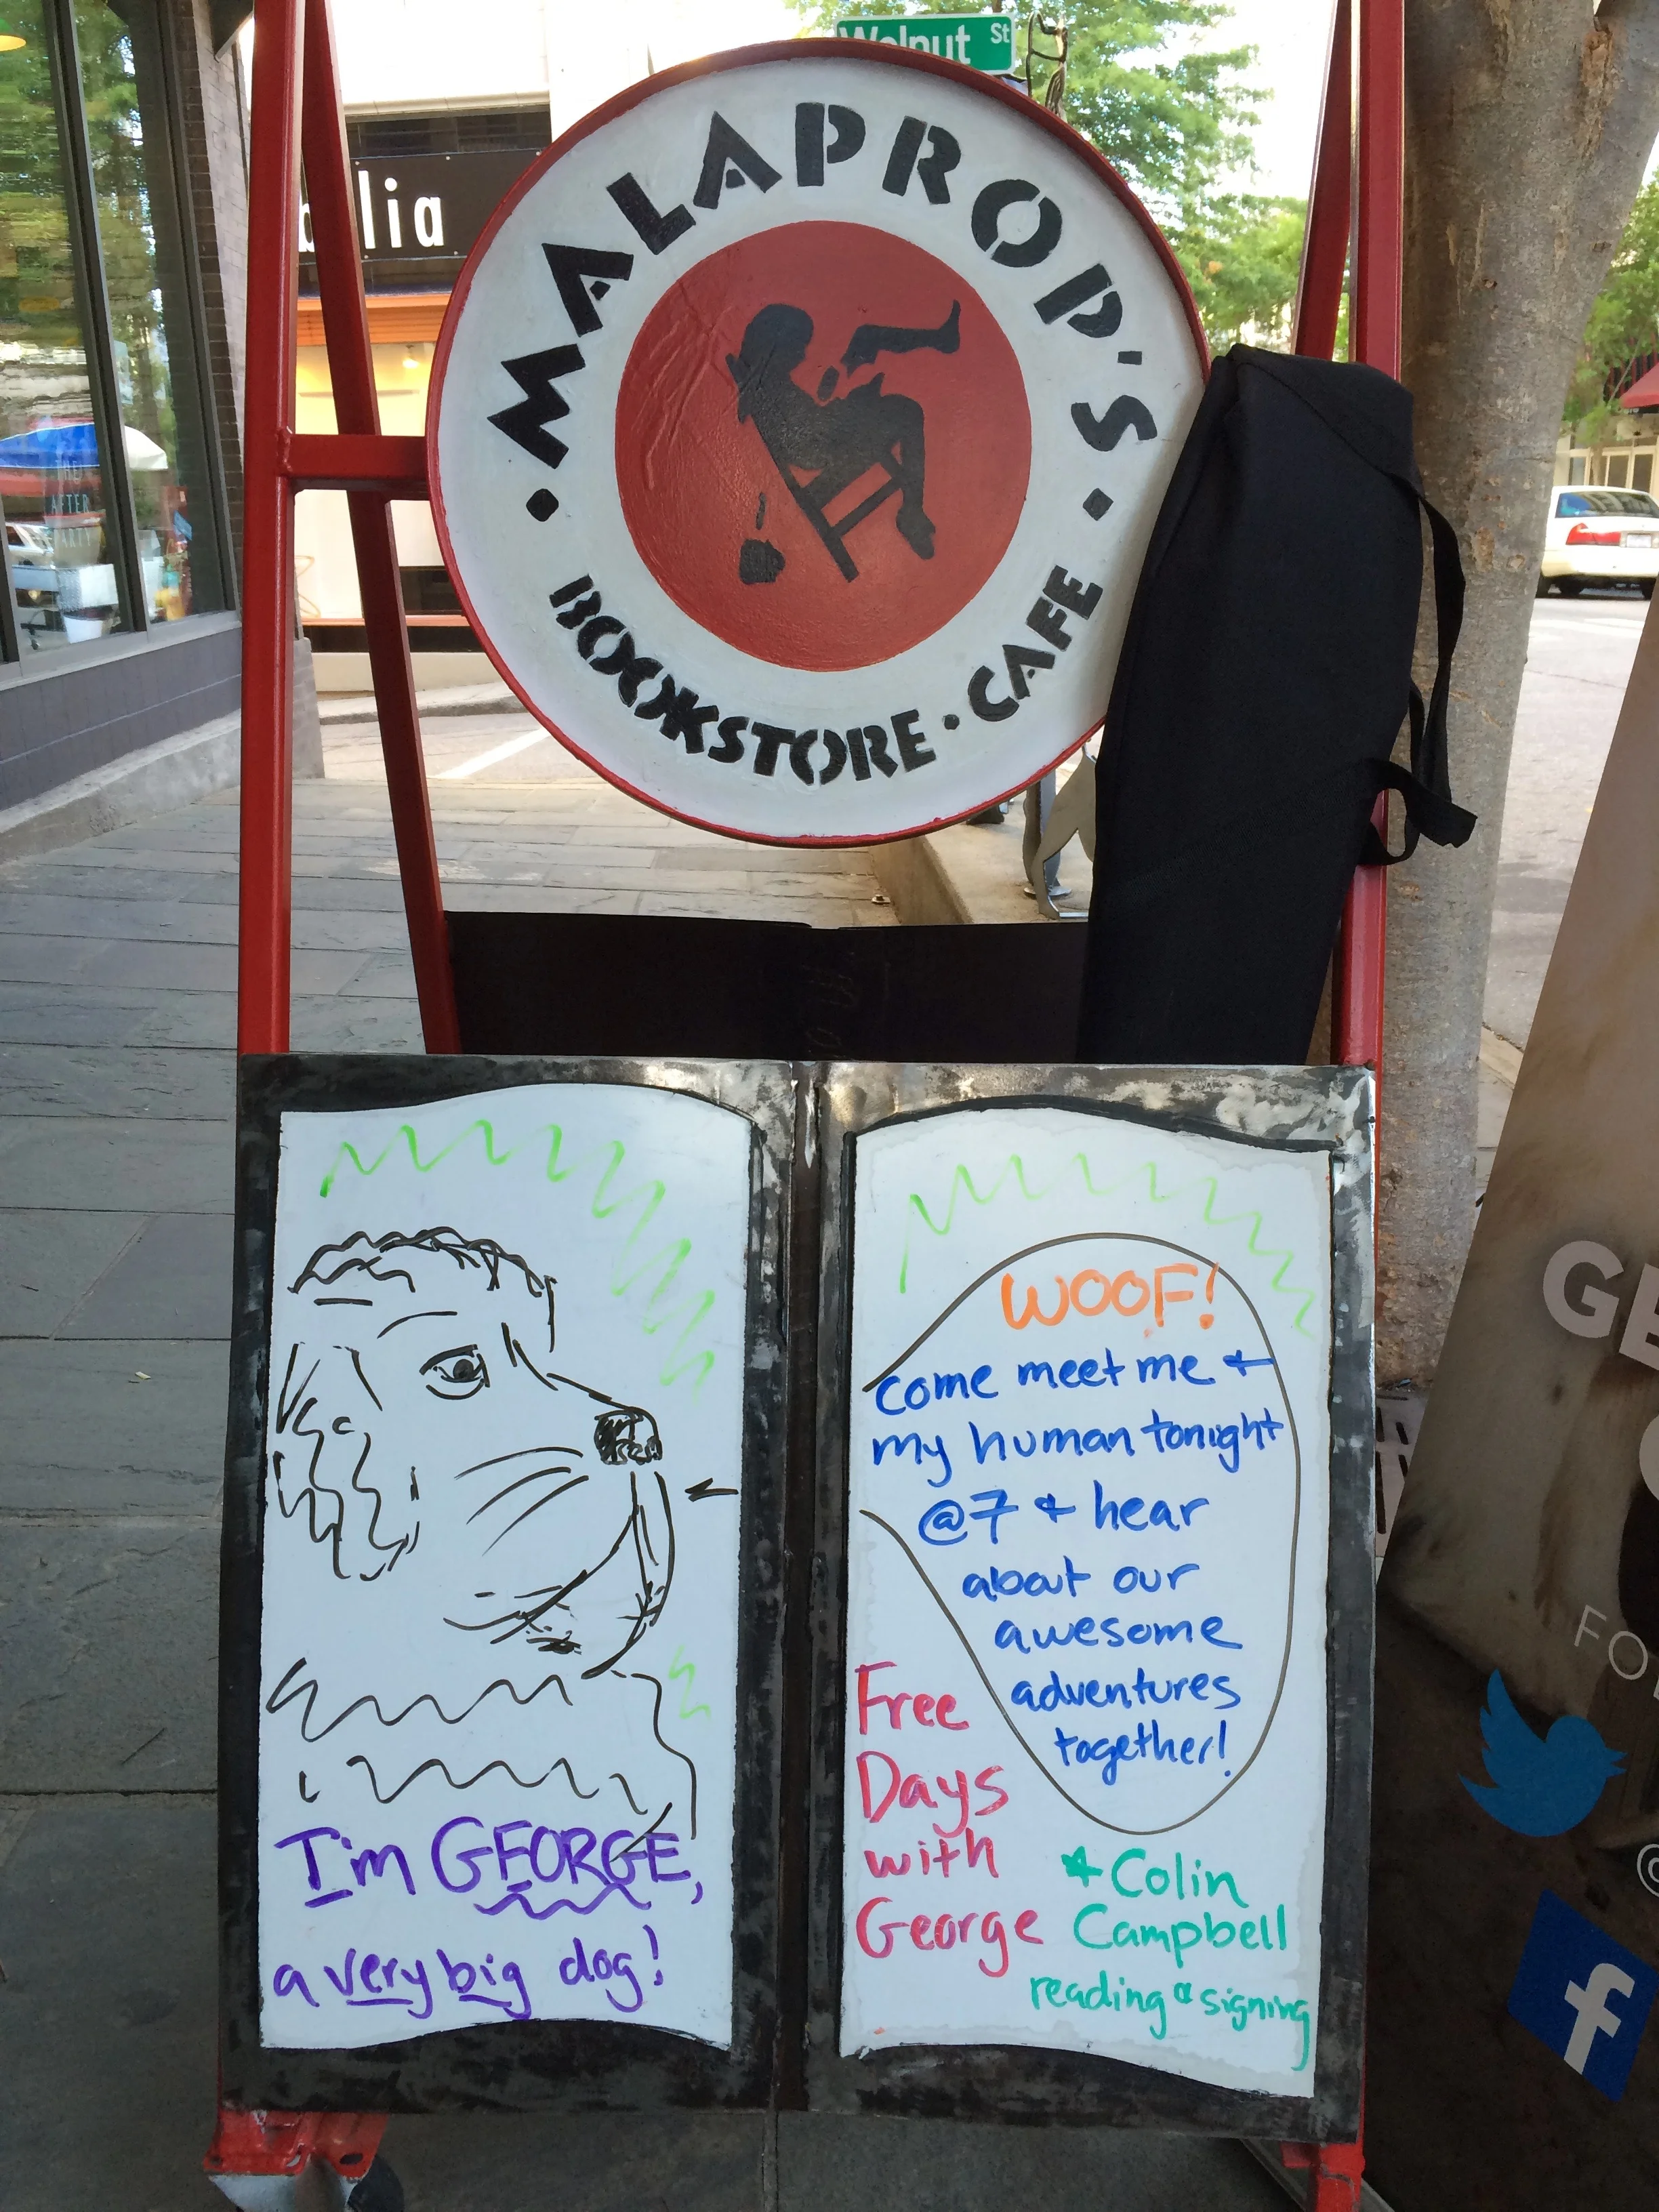 Walnut St
alia
MALAPROP'S
BOOKSTORE • CAFE
THE
AFTER
PARTY
WOOF!
come meet me +
my human tonight
@7 + hear
about our
awesome
adventures
together!
I'm GEORGE,
a very big dog!
Free
Days
with
George
+ Colin
Campbell
reading & signing
GE
FO
f